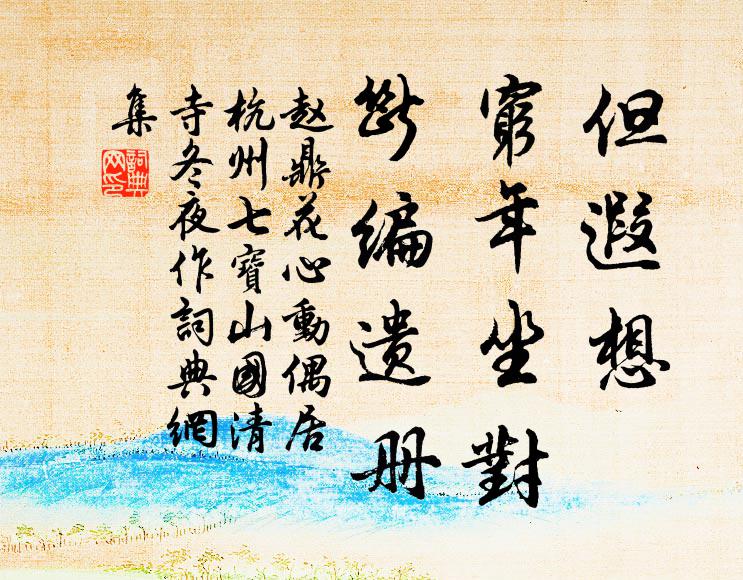 但遐想
窮年坐對
斷编遗册
赵鼎花心動偶居
杭州七寶山國清
寺冬夜作詞典網
集
詞典
网印